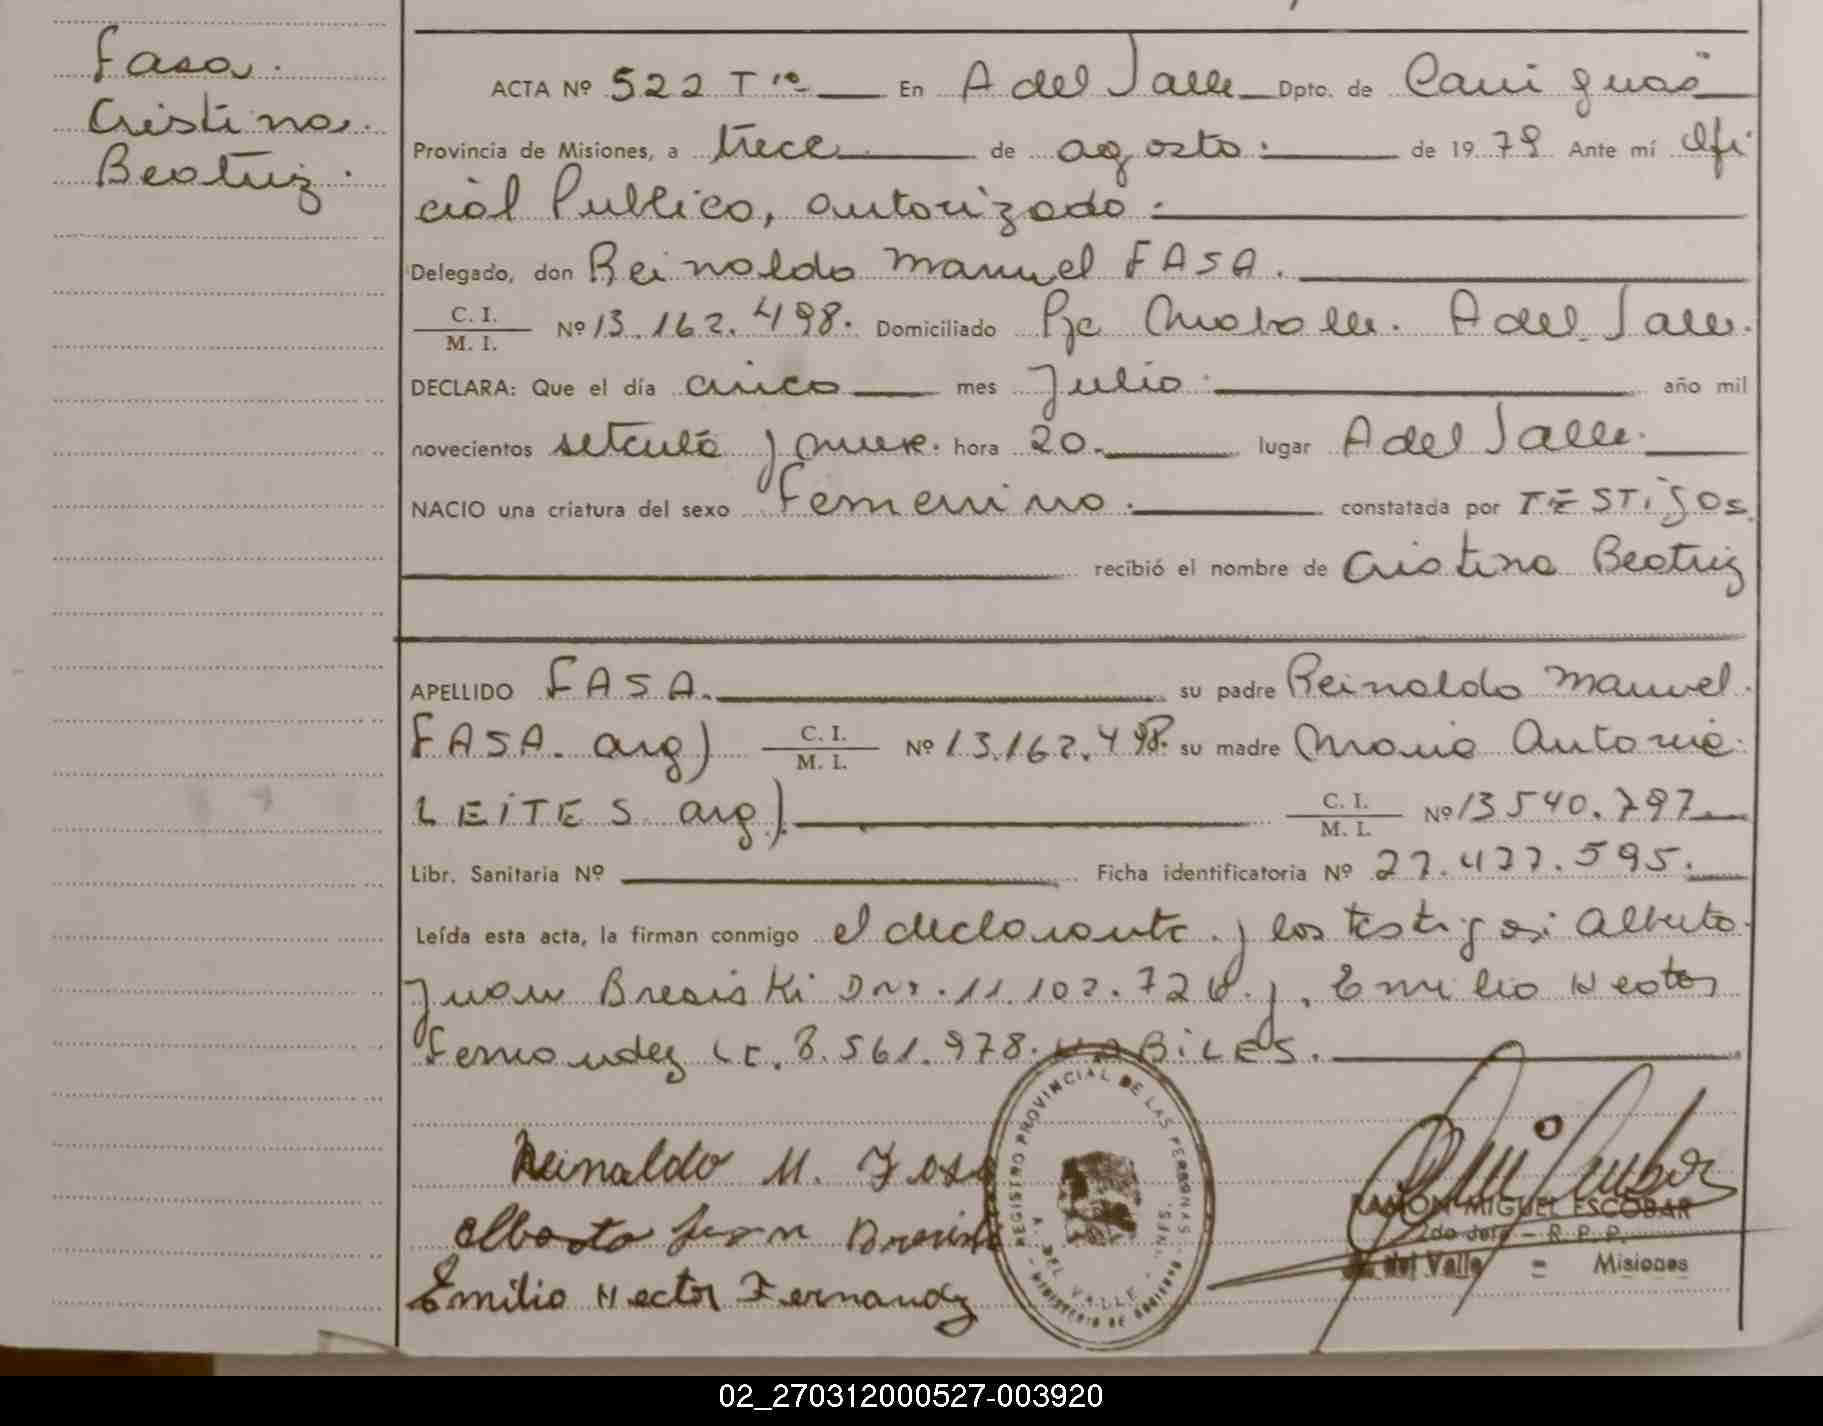 Fasa.
Cristina.
Beatriz.
ACTA Nº 522 T "º En A del Valle Dpto. de Cainguás
Provincia de Misiones, a trece de agosto. de 1979 Ante mí Ofi
cial Publico, autorizado.
Delegado, don Reinaldo Manuel FASA.
C. I.
M. I.
Nº 13.162.498. Domiciliado A del Valle.
DECLARA: Que el día cinco mes Julio. año mil
novecientos setenta y nueve. hora 20. lugar A del Valle.
NACIO una criatura del sexo Femenino. constatada por TESTigos.
recibió el nombre de Cristina Beatriz
APELLIDO FASA. su padre Reinaldo Manuel.
FASA. arg) C. I. / M. I. Nº 13.162.498. su madre Maria Antonia.
LEITES arg). C. I. / M. I. Nº 13540.797
Libr. Sanitaria Nº Ficha identificatoria Nº 27.477.595.
Leída esta acta, la firman conmigo el declarante. y los testigos: Alberto.
Juan Bresiski 11.102.726. y. Emilio Hector
Fernandez 8.561.978. HABiLES.
Reinaldo M. Fasa
Alberto Juan
Emilio Hector Fernandez
REGISTRO PROVINCIAL DE LAS PERSONAS
A. DEL VALLE
MINISTERIO DE GOBIERNO
RAMON MIGUEL ESCOBAR
2do Jefe - R. P. P.
A. del Valle = Misiones
02_270312000527-003920